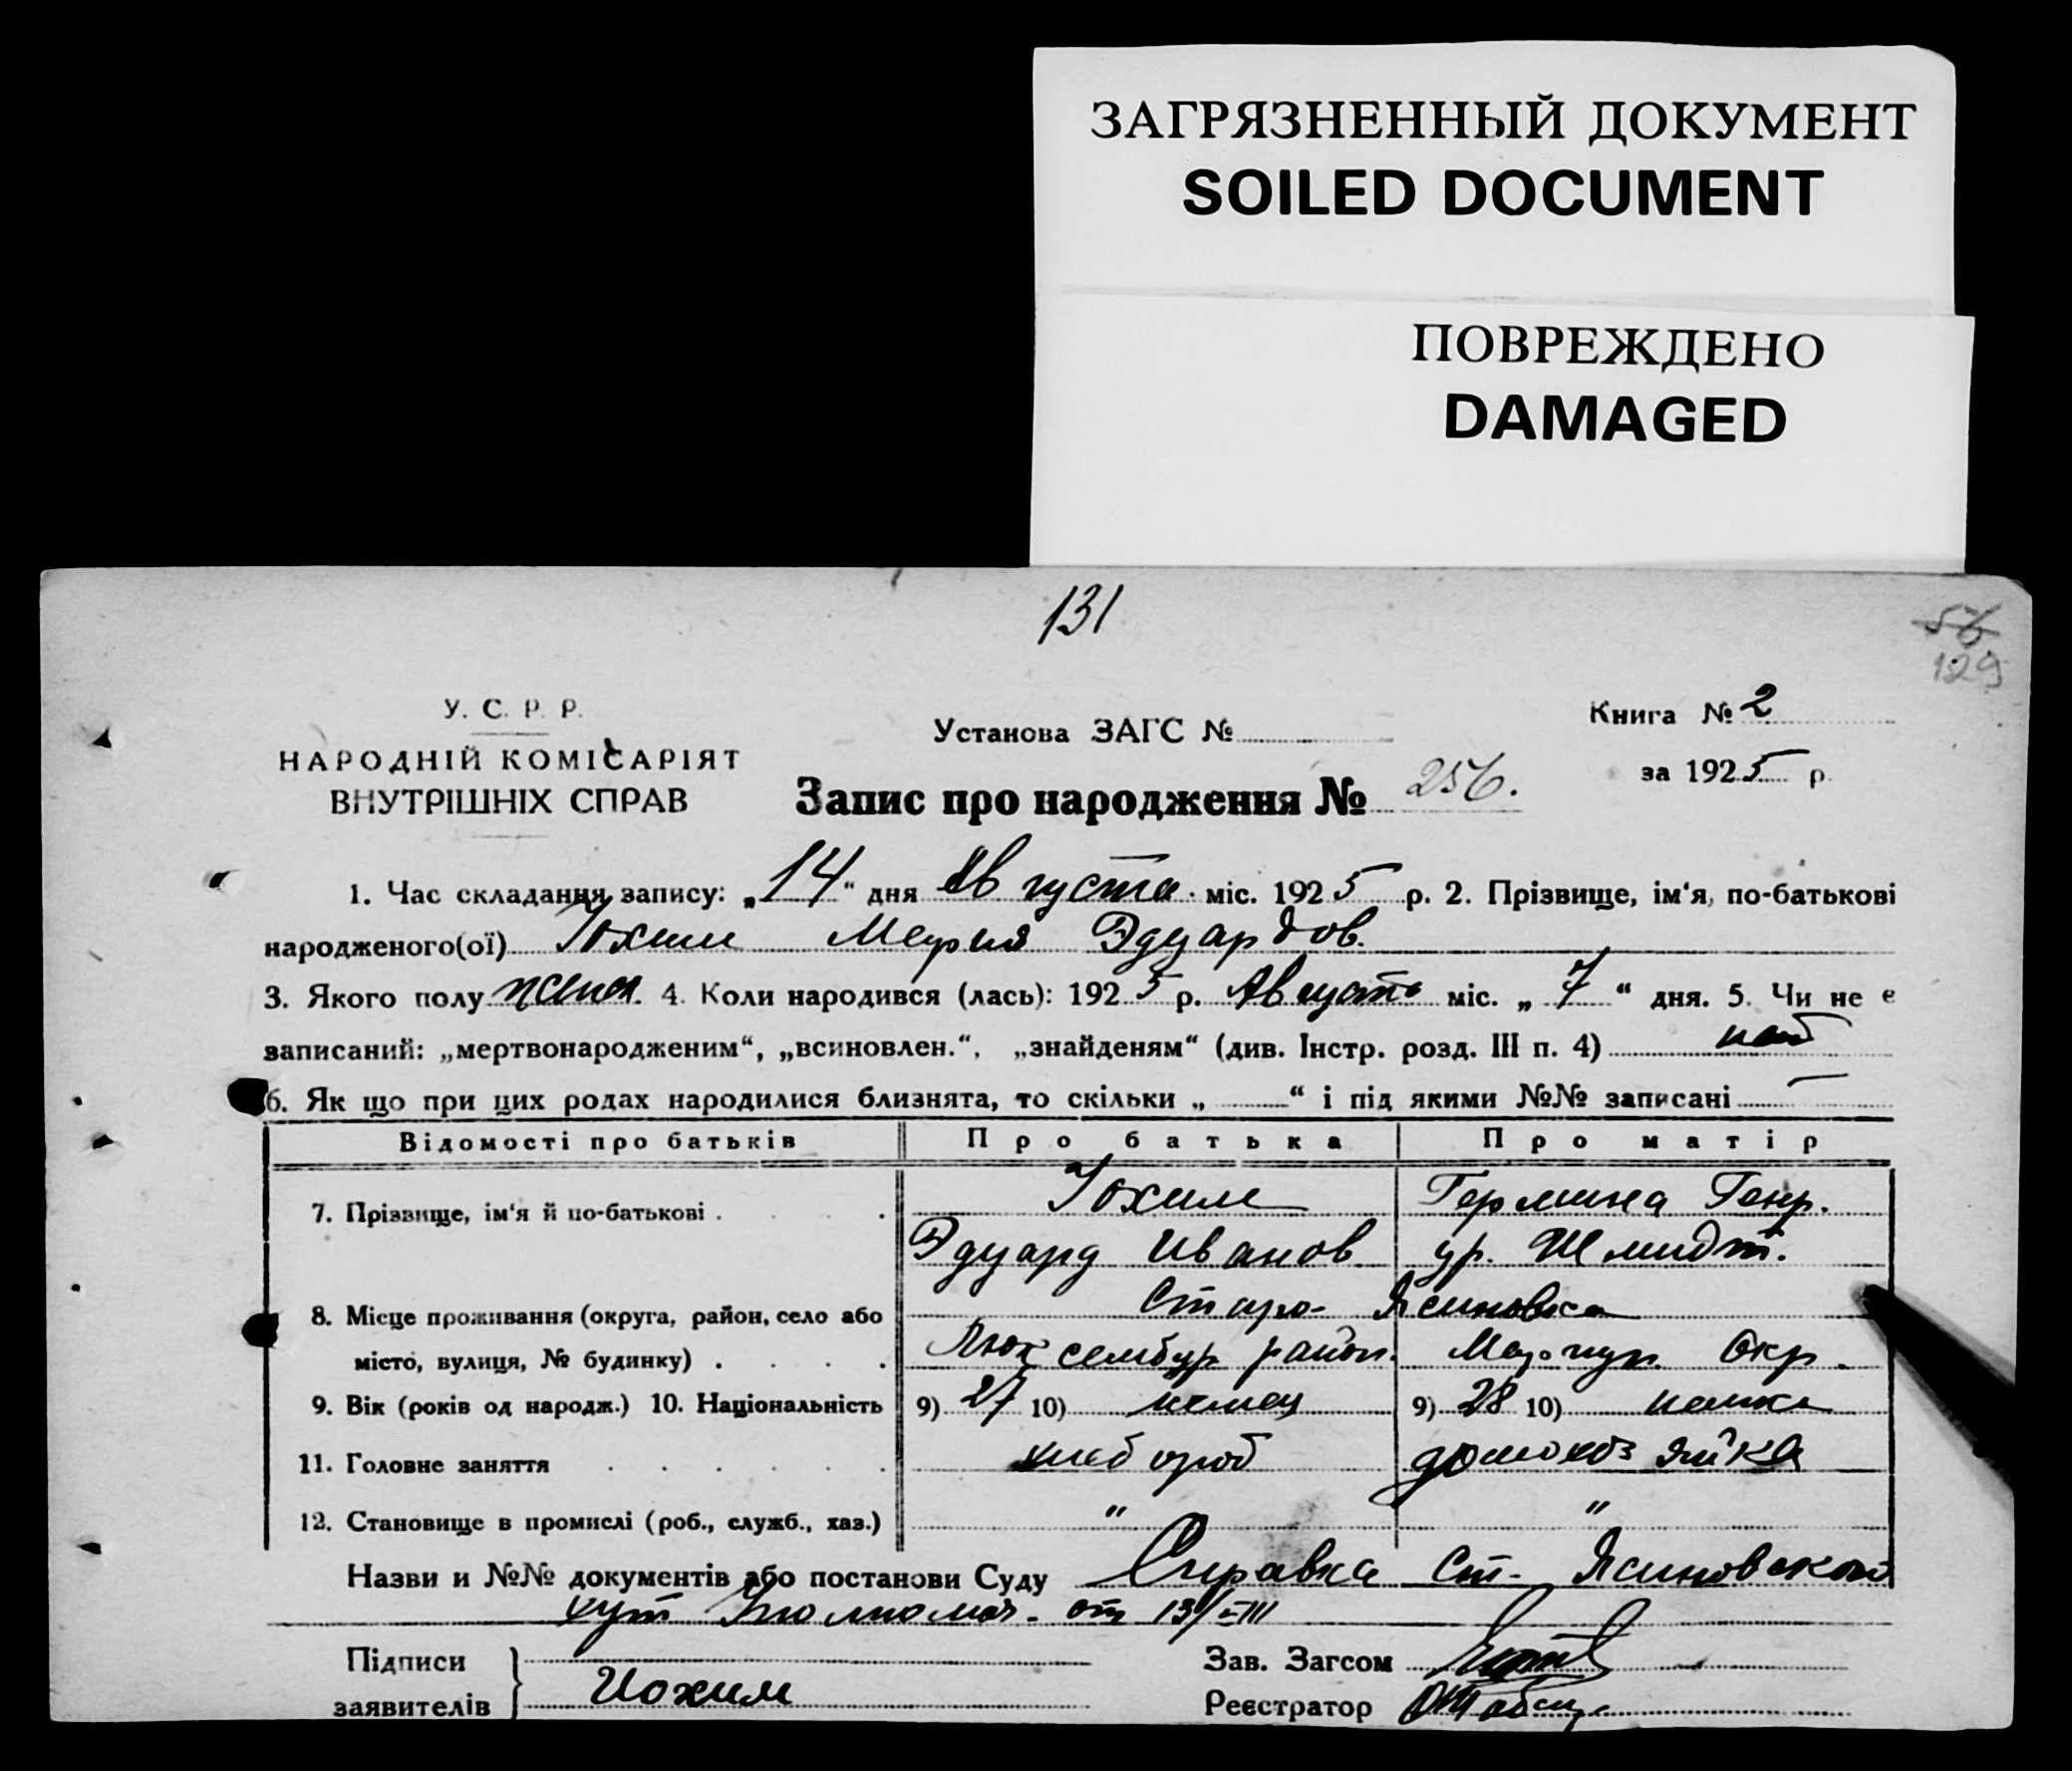 ЗАГРЯЗНЕННЫЙ ДОКУМЕНТ
SOILED DOCUMENT
ПОВРЕЖДЕНО
DAMAGED
131
56
129
У. С. Р. Р.
НАРОДНІЙ КОМІСАРІЯТ
ВНУТРІШНІХ СПРАВ
Установа ЗАГС №
Книга № 2
за 1925 р.
Запис про народження № 256.
1. Час складання запису: „14“ дня Августа міс. 1925 р. 2. Прізвище, ім‘я, по-батькові
народженого(ої) Іохим Мария Эдуардов.
3. Якого полу жен. 4. Коли народився (лась): 1925 р. Август міс. „7“ дня. 5. Чи не є
записаний: „мертвонародженим“, „всиновлен.“, „знайденям“ (див. Інстр. розд. III п. 4) нет
6. Як що при цих родах народилися близнята, то скільки „ “ і під якими №№ записані —
Відомості про батьків Про батька Про матір
7. Прізвище, ім'я й по-батькові . Іохим Гермина Генр.
Эдуард Иванов ур. Шмидт.
8. Місце проживання (округа, район, село або Старо- Ясиновка
місто, вулиця, № будинку) . Люксембур район. Мариуп. Окр.
9. Вік (років од народж.) 10. Національність 9) 27 10) немец 9) 28 10) немка
11. Головне заняття хлебороб домохозяйка
12. Становище в промислі (роб., служб., хаз.) " "
Назви и №№ документів або постанови Суду Справка Ст- Ясиновской
хут от 13/VIII
Підписи
заявителів Иохим
Зав. Загсом
Реєстратор